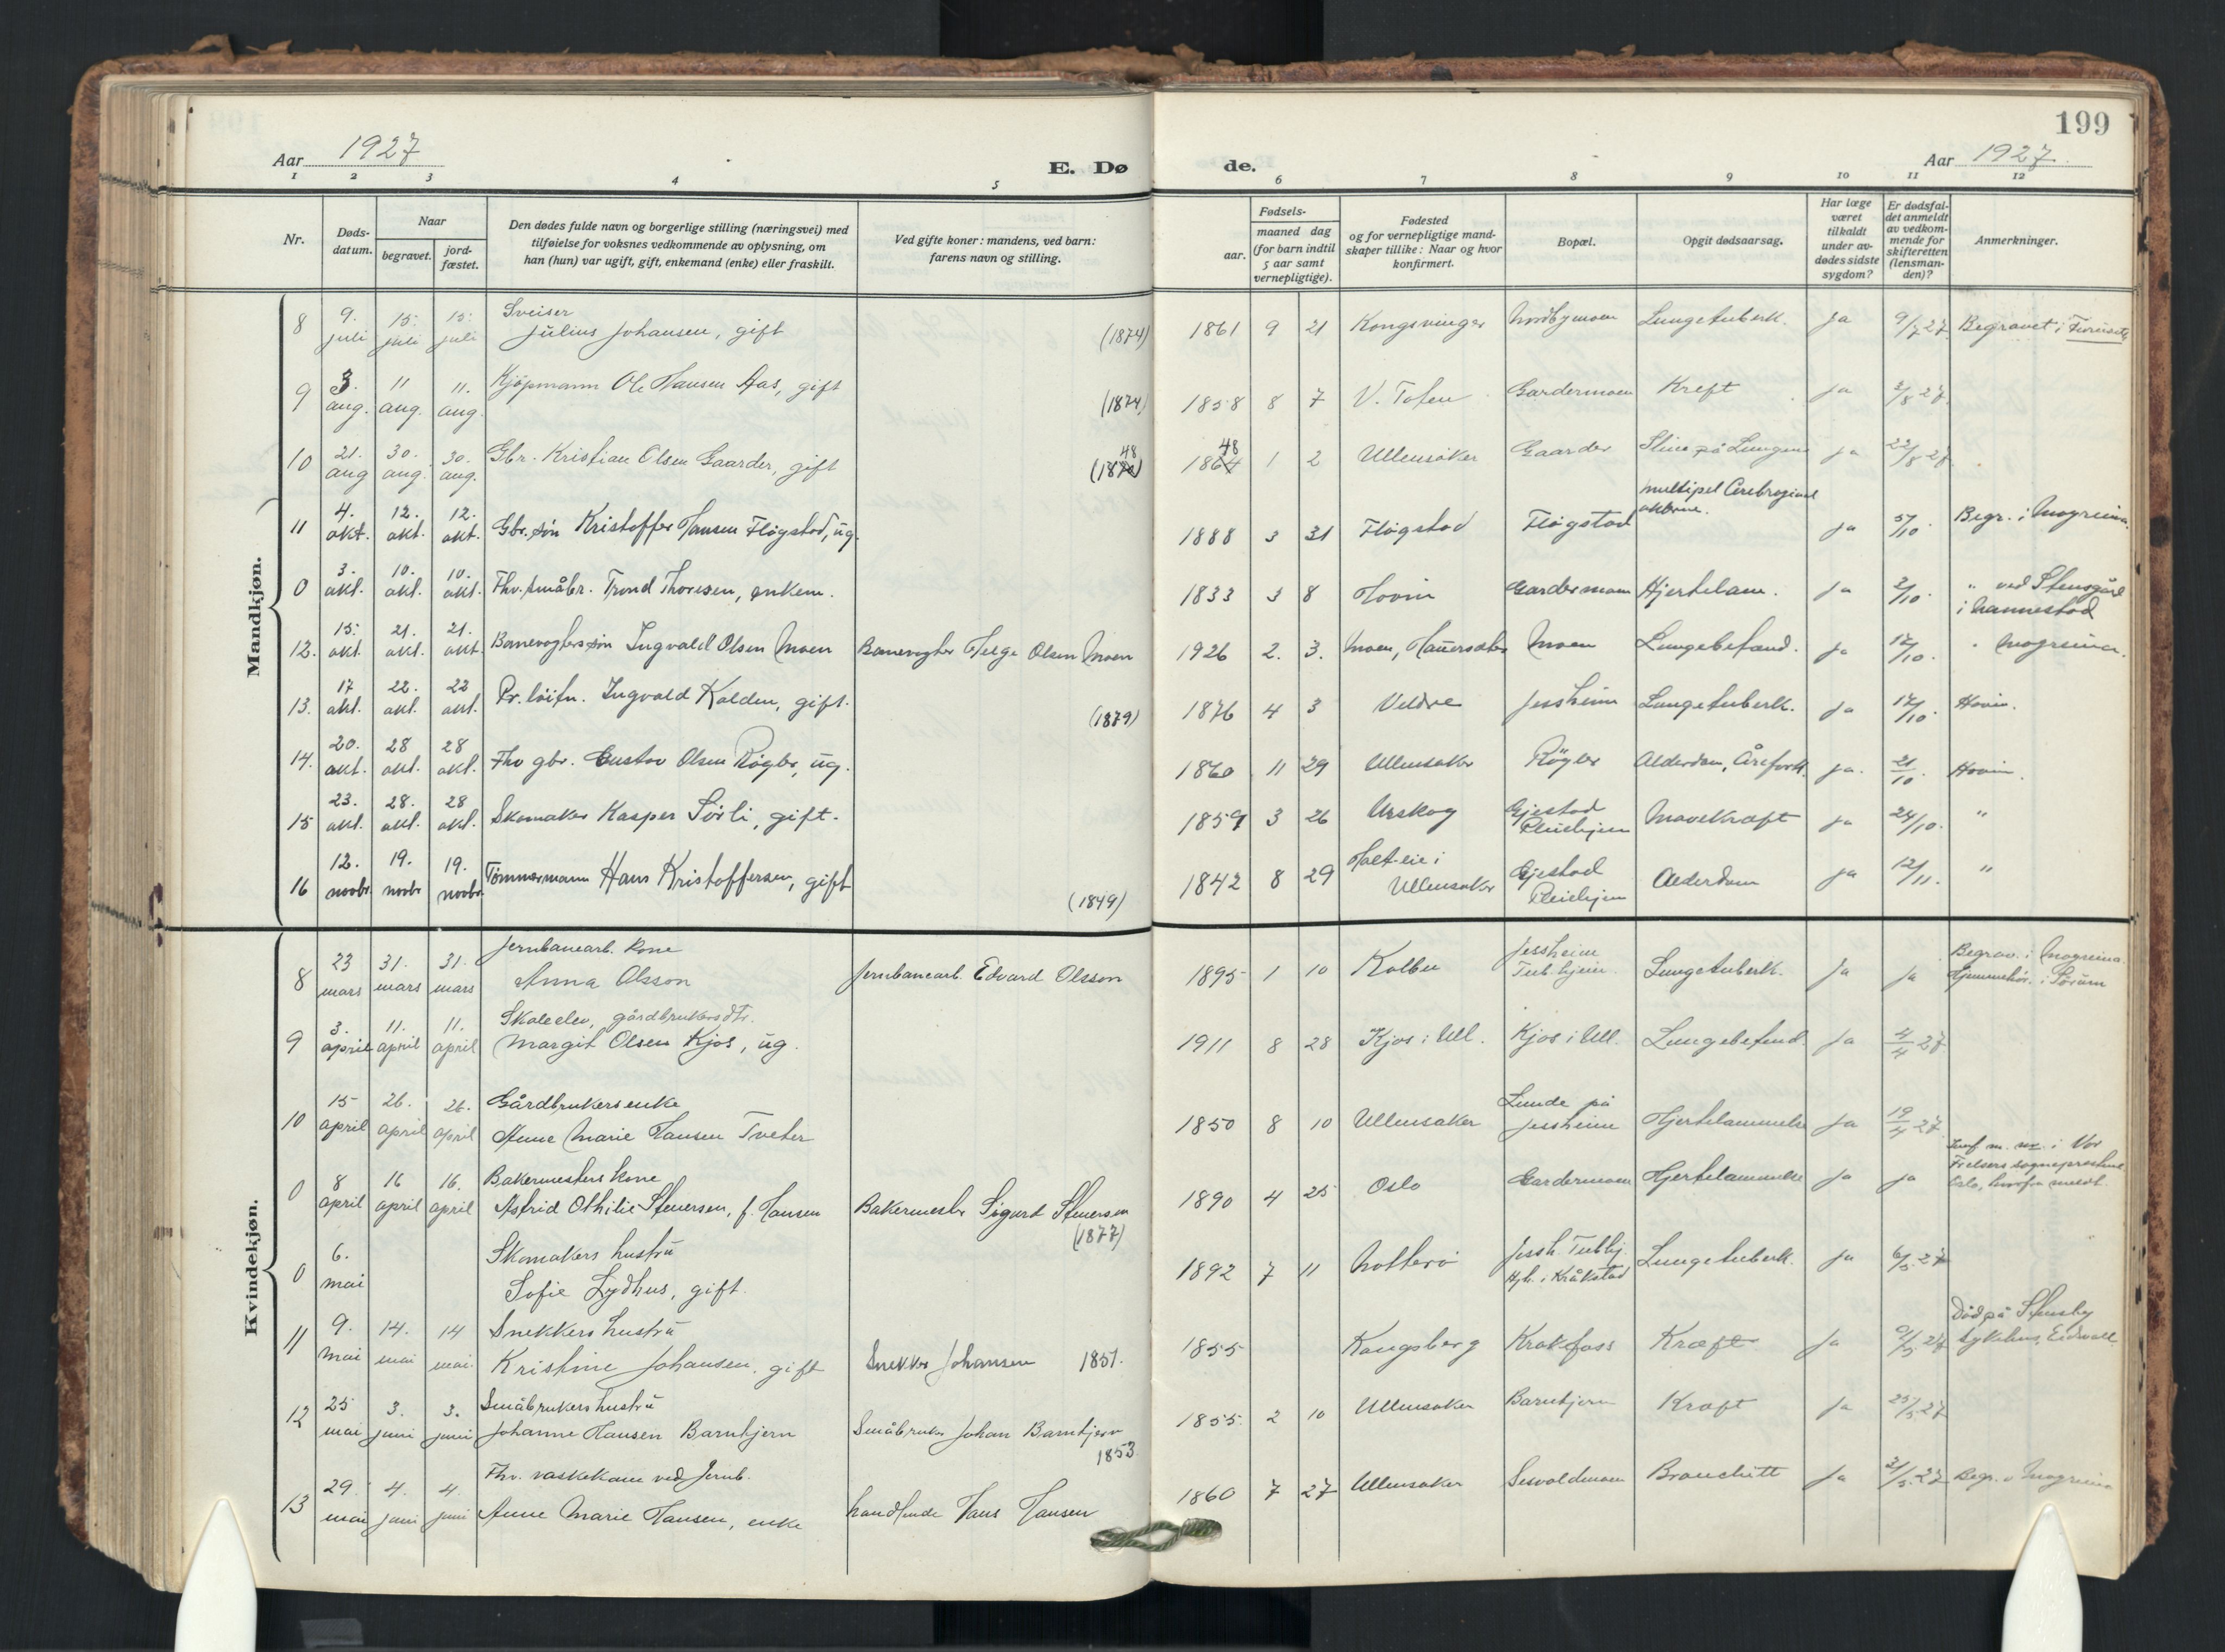 199
Aar 1927
E. Dø
de.
Aar 1927
1 2 3 4 5 6 7 8 9 10 11 12
Nr.
Døds-
datum.
Naar
begravet.
jord-
fæstet.
Den dødes fulde navn og borgerlige stilling (næringsvei) med
tilføielse for voksnes vedkommende av oplysning, om
han (hun) var ugift, gift, enkemand (enke) eller fraskilt.
Ved gifte koner: mandens, ved barn:
farens navn og stilling.
Fødsels-
aar.
maaned dag
(for barn indtil
5 aar samt
vernepligtige).
Fødested
og for vernepligtige mand-
skaper tillike: Naar og hvor
konfirmert.
Bopæl.
Opgit dødsaarsag.
Har læge
været
tilkaldt
under av-
dødes sidste
sygdom?
Er dødsfal-
det anmeldt
av vedkom-
mende for
skifteretten
(lensman-
den)?
Anmerkninger.
Mandkjøn.
8 9. juli 15. juli 15. juli Sveiser
Julius Johansen, gift (1874) 1861 9 21 Kongsvinger Nordbymoen Lungetuberk. Ja 9/7 27. Begravet i Furuset
9 3. aug. 11 aug. 11. aug. Kjøpmann Ole Hansen Aas, gift (1874) 1858 8 7 V. Toten Gardermoen Kreft ja 3/8 27.
10 21. aug 30. aug. 30. aug. Gbr. Kristian Olsen Gaarder, gift 48 1864 48 1 2 Ullensaker Gaarder Sline på Lungene ja 22/8 27.
11 4. okt. 12. okt. 12. okt. Gbr. søn Kristoffer Hansen Fløgstad, ug. 1888 3 31 Fløgstad Fløgstad multipel ja 5/10. Begr. i Mogreina.
0 3. okt. 10. okt. 10. okt. Fhv. småbr. Trond Thoresen, enkem. 1833 3 8 Hovin Gardermoen Hjertelam. Ja 3/10. " ved Stensgård
i Nannestad
12. 15. okt. 21. okt. 21. okt. Banevogterssøn Ingvald Olsen Moen Banevogter Helge Olsen Moen 1926 2. 3. Moen, Hauerseter Moen Lungebetænd. ja 17/10. " Mogreina.
13. 17 okt. 22. okt. 22 okt. Pr. løitn. Ingvald Kolden, gift. (1879) 1876 4 3 Veldre Jessheim Lungetuberk. Ja 17/10. Hovin.
14. 20. okt. 28 okt. 28 okt. Fhv gbr. Gustav Olsen Røgler, ug. 1860 11 29 Ullensaker Røgler Alderdom, Årefork. ja. 21/10. Hovin.
15 23. okt. 28. okt. 28 okt. Skomaker Kasper Sørli, gift. 1859 3 26 Urskog Gjestad
Pleiehjem Mavekræft ja 24/10. "
16 12. novbr. 19. novbr 19. novbr. Tømmermann Hans Kristoffersen, gift (1849) 1842 8 29 Holt-eie i
Ullensaker Gjestad
Pleiehjem Alderdom ja 12/11. "
Kvindekjøn.
8 23 mars 31. mars 31. mars Jernbanearb. kone
Anna Olsson Jernbanearb. Edvard Olsson 1895 1 10 Kolbu Jessheim
Tub.hjem. Lungetuberk. Ja ja Begrav. i Mogreina.
Hjemmehør. i Sørum
9 3. april 11. april 11. april Skoleelev, gårdbrukersdtr.
Margit Olsen Kjos, ug. 1911 8 28 Kjos i Ull. Kjos i Ull. Lungebetend. Ja 4/4 27
10 15 april 26. april 26. april Gårdbrukersenke
Anne Marie Hansen Tveter 1850 8 10 Ullensaker Lunde på
Jessheim Hjertelammelse Ja 19/4 27.
0 8 april 16 april 16. april Bakermesters kone
Astrid Othilie Stenersen, f. Hansen Bakermester Sigurd Stenersen
(1877) 1890 4 25 Oslo Gardermoen Hjertelammelse Ja ja m. i Vor
Frelsers sogneprestemb.
Oslo, hvorfra meldt.
0 6. mai Skomakers hustru
Sofie Lydhus, gift. 1892 7 11 Nøtterø Jessh. Tubhj.
Hjh. i Kråkstad Lungetuberk. Ja 6/5 27
11 9. mai 14. mai 14 mai. Snekkers hustru
Kristine Johansen, gift Snekker Johansen 1851. 1855 Kongsberg Krakfoss Kræft Ja 9/5 27 Død på Stensby
sykehus, Eidsvoll
12 25 mai 3. juni 3. juni Småbrukers hustru
Johanne Hansen Barnkjern Småbruker Johan Barnkjern
1853. 1855. 2 10 Ullensaker Barnkjern Kræft Ja 25/5 27
13 29. mai 4. juni 4. juni Fhv. vaskekone ved Jernb.
Anne Marie Hansen, enke handlende Hans Hansen 1860 7 27 Ullensaker Sesvoldmoen Bronchitt Ja 31/5. 27 Begr. v Mogreina